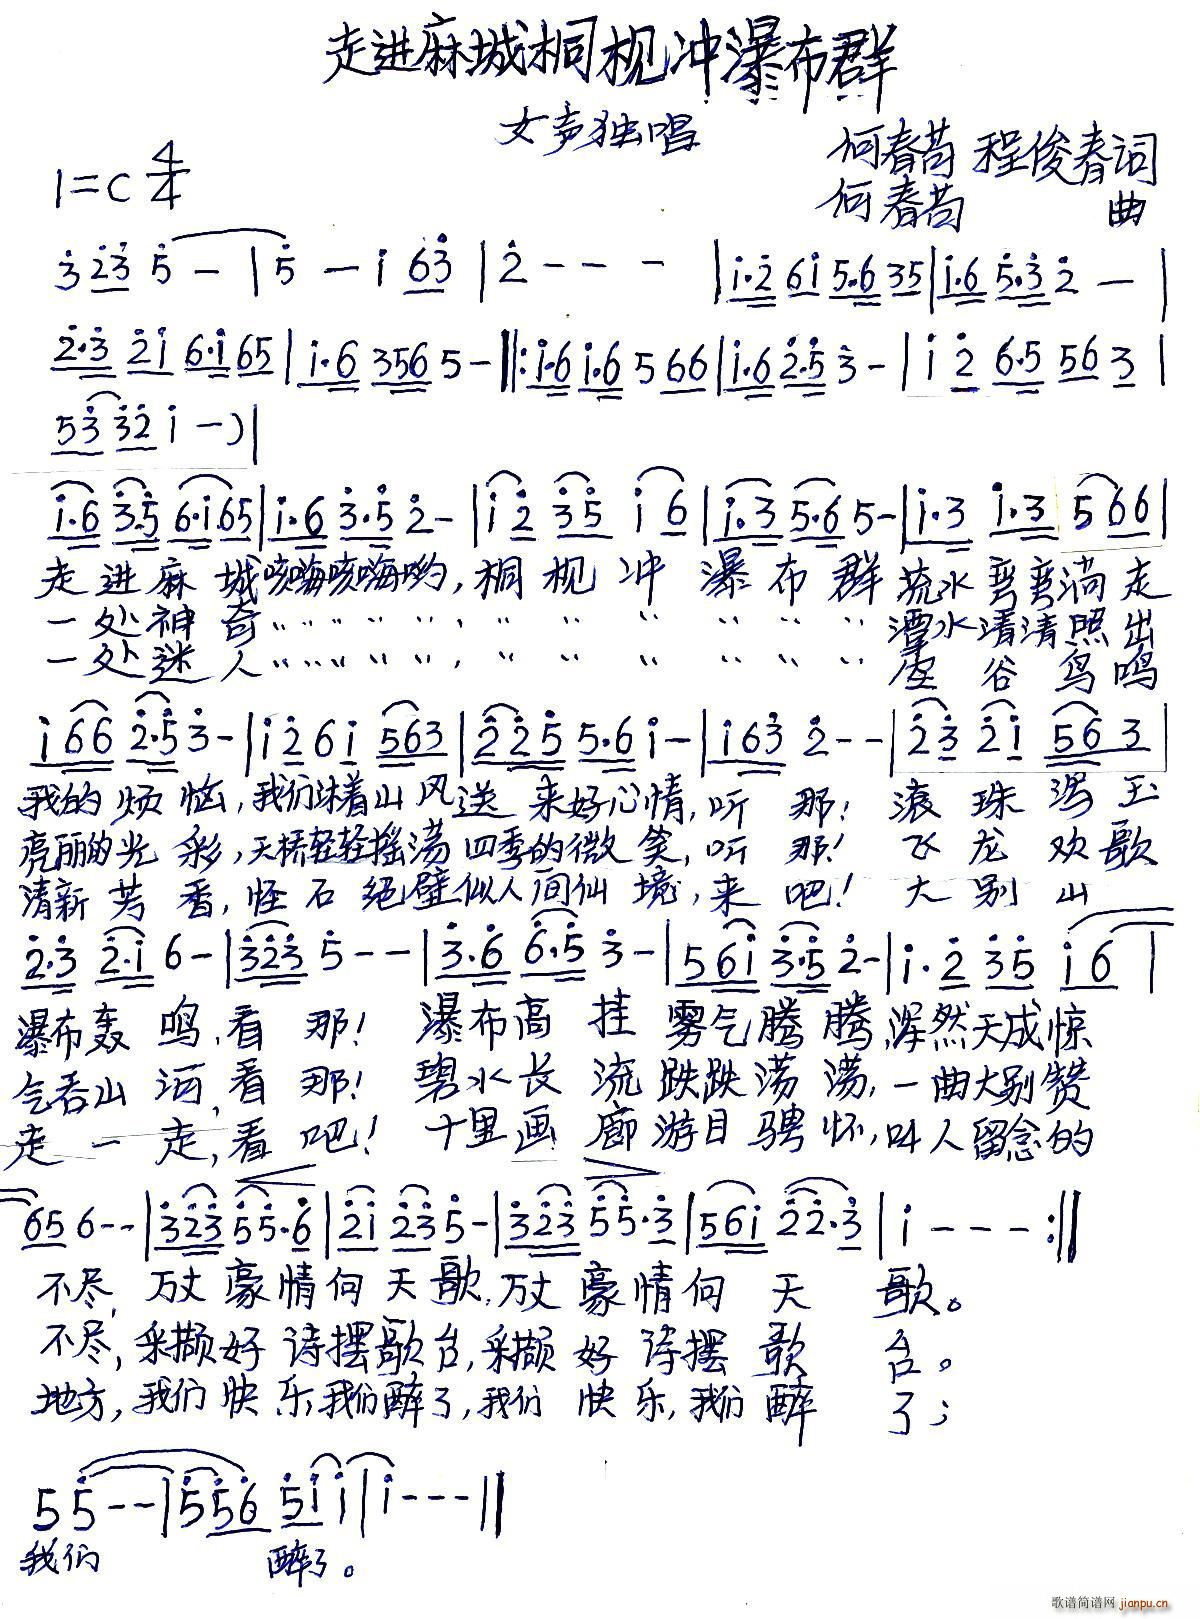 走进麻城桐枧冲瀑布群
女声独唱
1=C 4/4
何春苟 程俊春词
何春苟 曲
3 23 5 — | 5 — i 63 | 2 - - - | i·2 6i 5·6 35 | i·6 5·3 2 — |
2·3 2i 6·i 65 | i·6 356 5 - ‖: i·6 i·6 5 66 | i·6 2·5 3 - | i 2 6·5 56 3 |
53 32 i -) |
i·6 3·5 6·i 65 | i·6 3·5 2- | i 2 35 i 6 | i·3 5·6 5- | i·3 i·3 566 |
走进麻城咳嗨咳嗨哟,桐枧冲瀑布群流水弯弯淌走
一处神奇〃〃〃〃〃,〃〃〃〃〃〃潭水清清照出
一处迷人〃〃〃〃〃,〃〃〃〃〃〃空谷鸟鸣
i66 2·5 3- | i2 6i 563 | 225 5·6 i- | i63 2-- | 23 2i 563 |
我的烦恼,我们沐着山风送来好心情,听那!滚珠泻玉
亮丽的光彩,天桥轻轻摇荡四季的微笑,听那!飞龙欢歌
清新芳香,怪石绝壁似人间仙境,来吧!大别山
2·3 2·i 6- | 323 5-- | 3·6 6·5 3- | 56i 3·5 2- | i·2 35 i6 |
瀑布轰鸣,看那!瀑布高挂雾气腾腾,浑然天成惊
气吞山河,看那!碧水长流跌跌荡荡,一曲大别赞
走一走,看吧!十里画廊游目骋怀,叫人留念的
65 6-- | 323 55·6 | 2i 23 5- | 323 55·3 | 56i 22·3 | i - - - :‖
不尽,万丈豪情向天歌,万丈豪情向天歌。
不尽,采撷好诗摆歌台,采撷好诗摆歌台。
地方,我们快乐,我们醉了,我们快乐,我们醉了;
5 5 - - | 556 5i i | i - - - ‖
我们 醉了。
歌谱简谱网 jianpu.cn